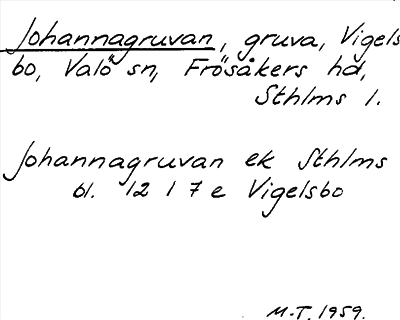 Johannagruvan, gruva, Vigels
bo, Valö sn, Frösåkers hd,
Sthlms l.
Johannagruvan ek Sthlms
bl. 12 I 7 e Vigelsbo
M-T. 1959.